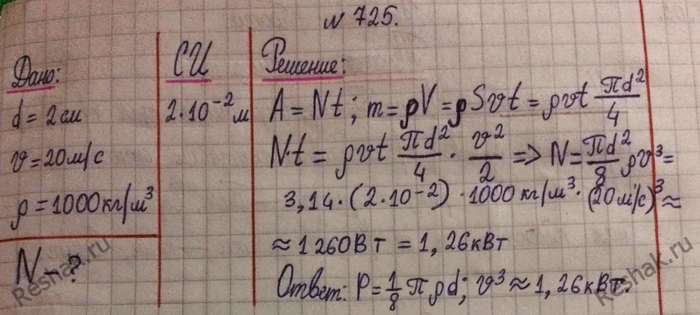 № 725.
Дано:
d = 2 см
υ = 20 м/с
ρ = 1000 кг/м³
N - ?
СИ
2·10⁻² м
Решение:
A = Nt; m = ρV = ρSυt = ρυt πd²/4
N·t = ρυt πd²/4 · υ²/2 => N = πd²/8 ρυ³ =
3,14·(2·10⁻²)·1000 кг/м³·(20 м/с)³ ≈
≈ 1260 Вт = 1,26 кВт
Ответ: P = 1/8 π ρd; υ³ ≈ 1,26 кВт.
Reshak.ru
Reshak.ru